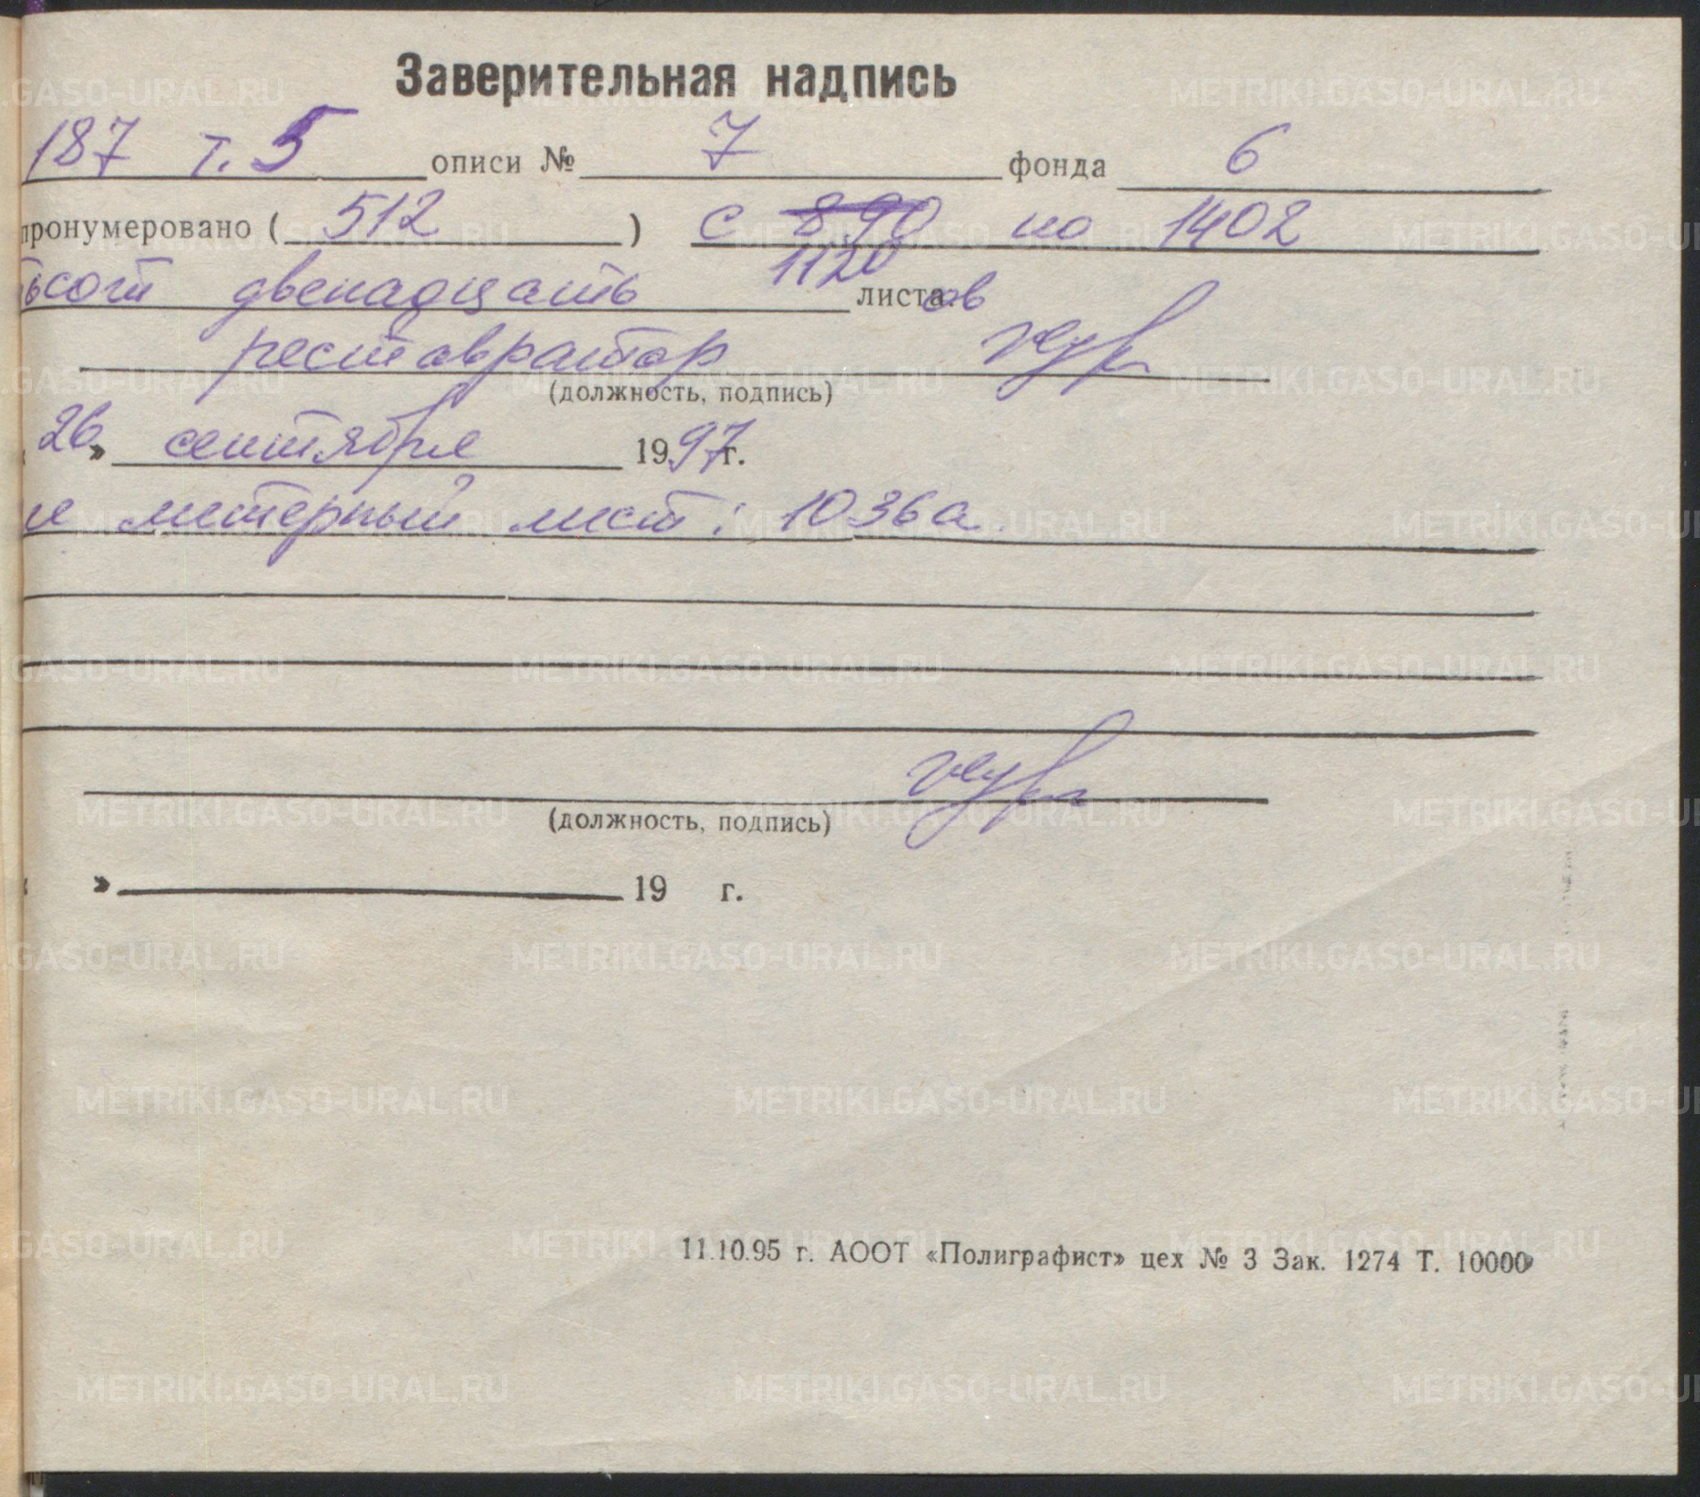 Заверительная надпись
187 т. 5 описи № 7 фонда 6
пронумеровано ( 512 ) с 890 по 1402
1120
ьсот двенадцать листа ов
реставратор
(должность, подпись)
26 » сентября 1997 г.
е литерный лист: 1036а.
(должность, подпись)
« » 19 г.
11.10.95 г. АООТ «Полиграфист» цех № 3 Зак. 1274 Т. 10000
METRIKI.GASO-URAL.RU